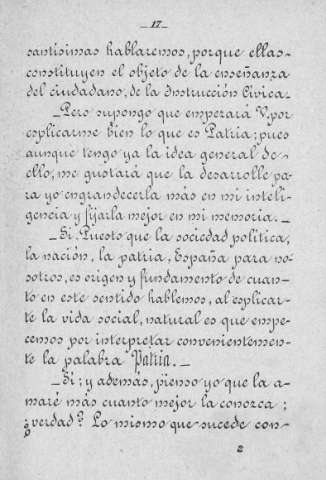 _ 17._
santísimas hablaremos, porque ellas
constituyen el objeto de la enseñanza
del ciudadano, de la Instrucción Cívica.
_Pero supongo que empezará V. por
esplicarme bien lo que es Patria; pues
aunque tengo ya la idea general de
ello, me gustará que la desarrolle pa-
ra yo engrandecerla más en mi inteli-
gencia y fijarla mejor en mi memoria._
_Sí. Puesto que la sociedad política,
la nación, la patria, España para no-
sotros, es origen y fundamento de cuan-
to en este sentido hablemos, al esplicar-
te la vida social, natural es que empe-
cemos por interpretar convenientemen-
te la palabra Patria._
_Sí; y además, pienso yo que la a-
maré más cuanto mejor la conozca;
¿verdad? Lo mismo que sucede con-
2